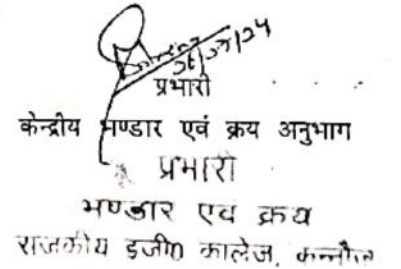 प्रभारी
केन्द्रीय भण्डार एवं क्रय अनुभाग
प्रभारी
भण्डार एवं क्रय
राजकीय इंजी0 कालेज, कन्नौज